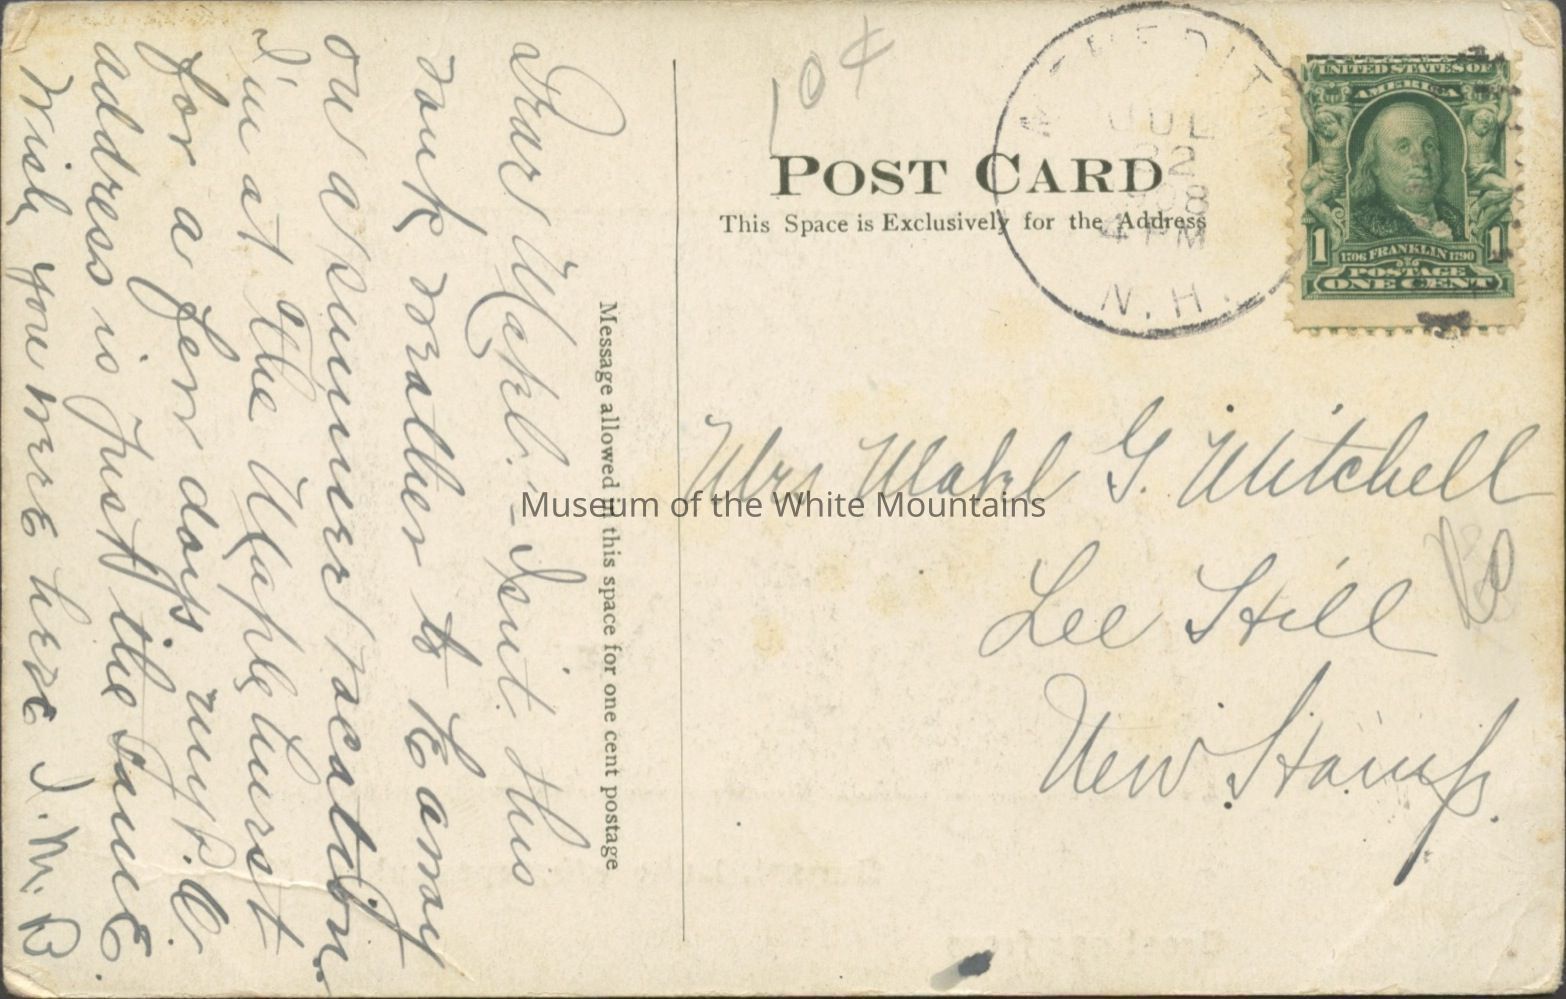 10¢
MEREDITH
JUL
22
1908
4 PM
N.H.
UNITED STATES OF
AMERICA
1 1706 FRANKLIN 1790 1
POSTAGE
ONE CENT
POST CARD
This Space is Exclusively for the Address
Message allowed in this space for one cent postage
Dear Mabel. - Isn't this
rather to be away
on a summer vacation.
I'm at the Maplehurst
for a few days my P.O.
address is just the same
Wish you were here J. M. B.
Mrs Mabel G. Mitchell
Lee Hill
New Hamp.
Museum of the White Mountains